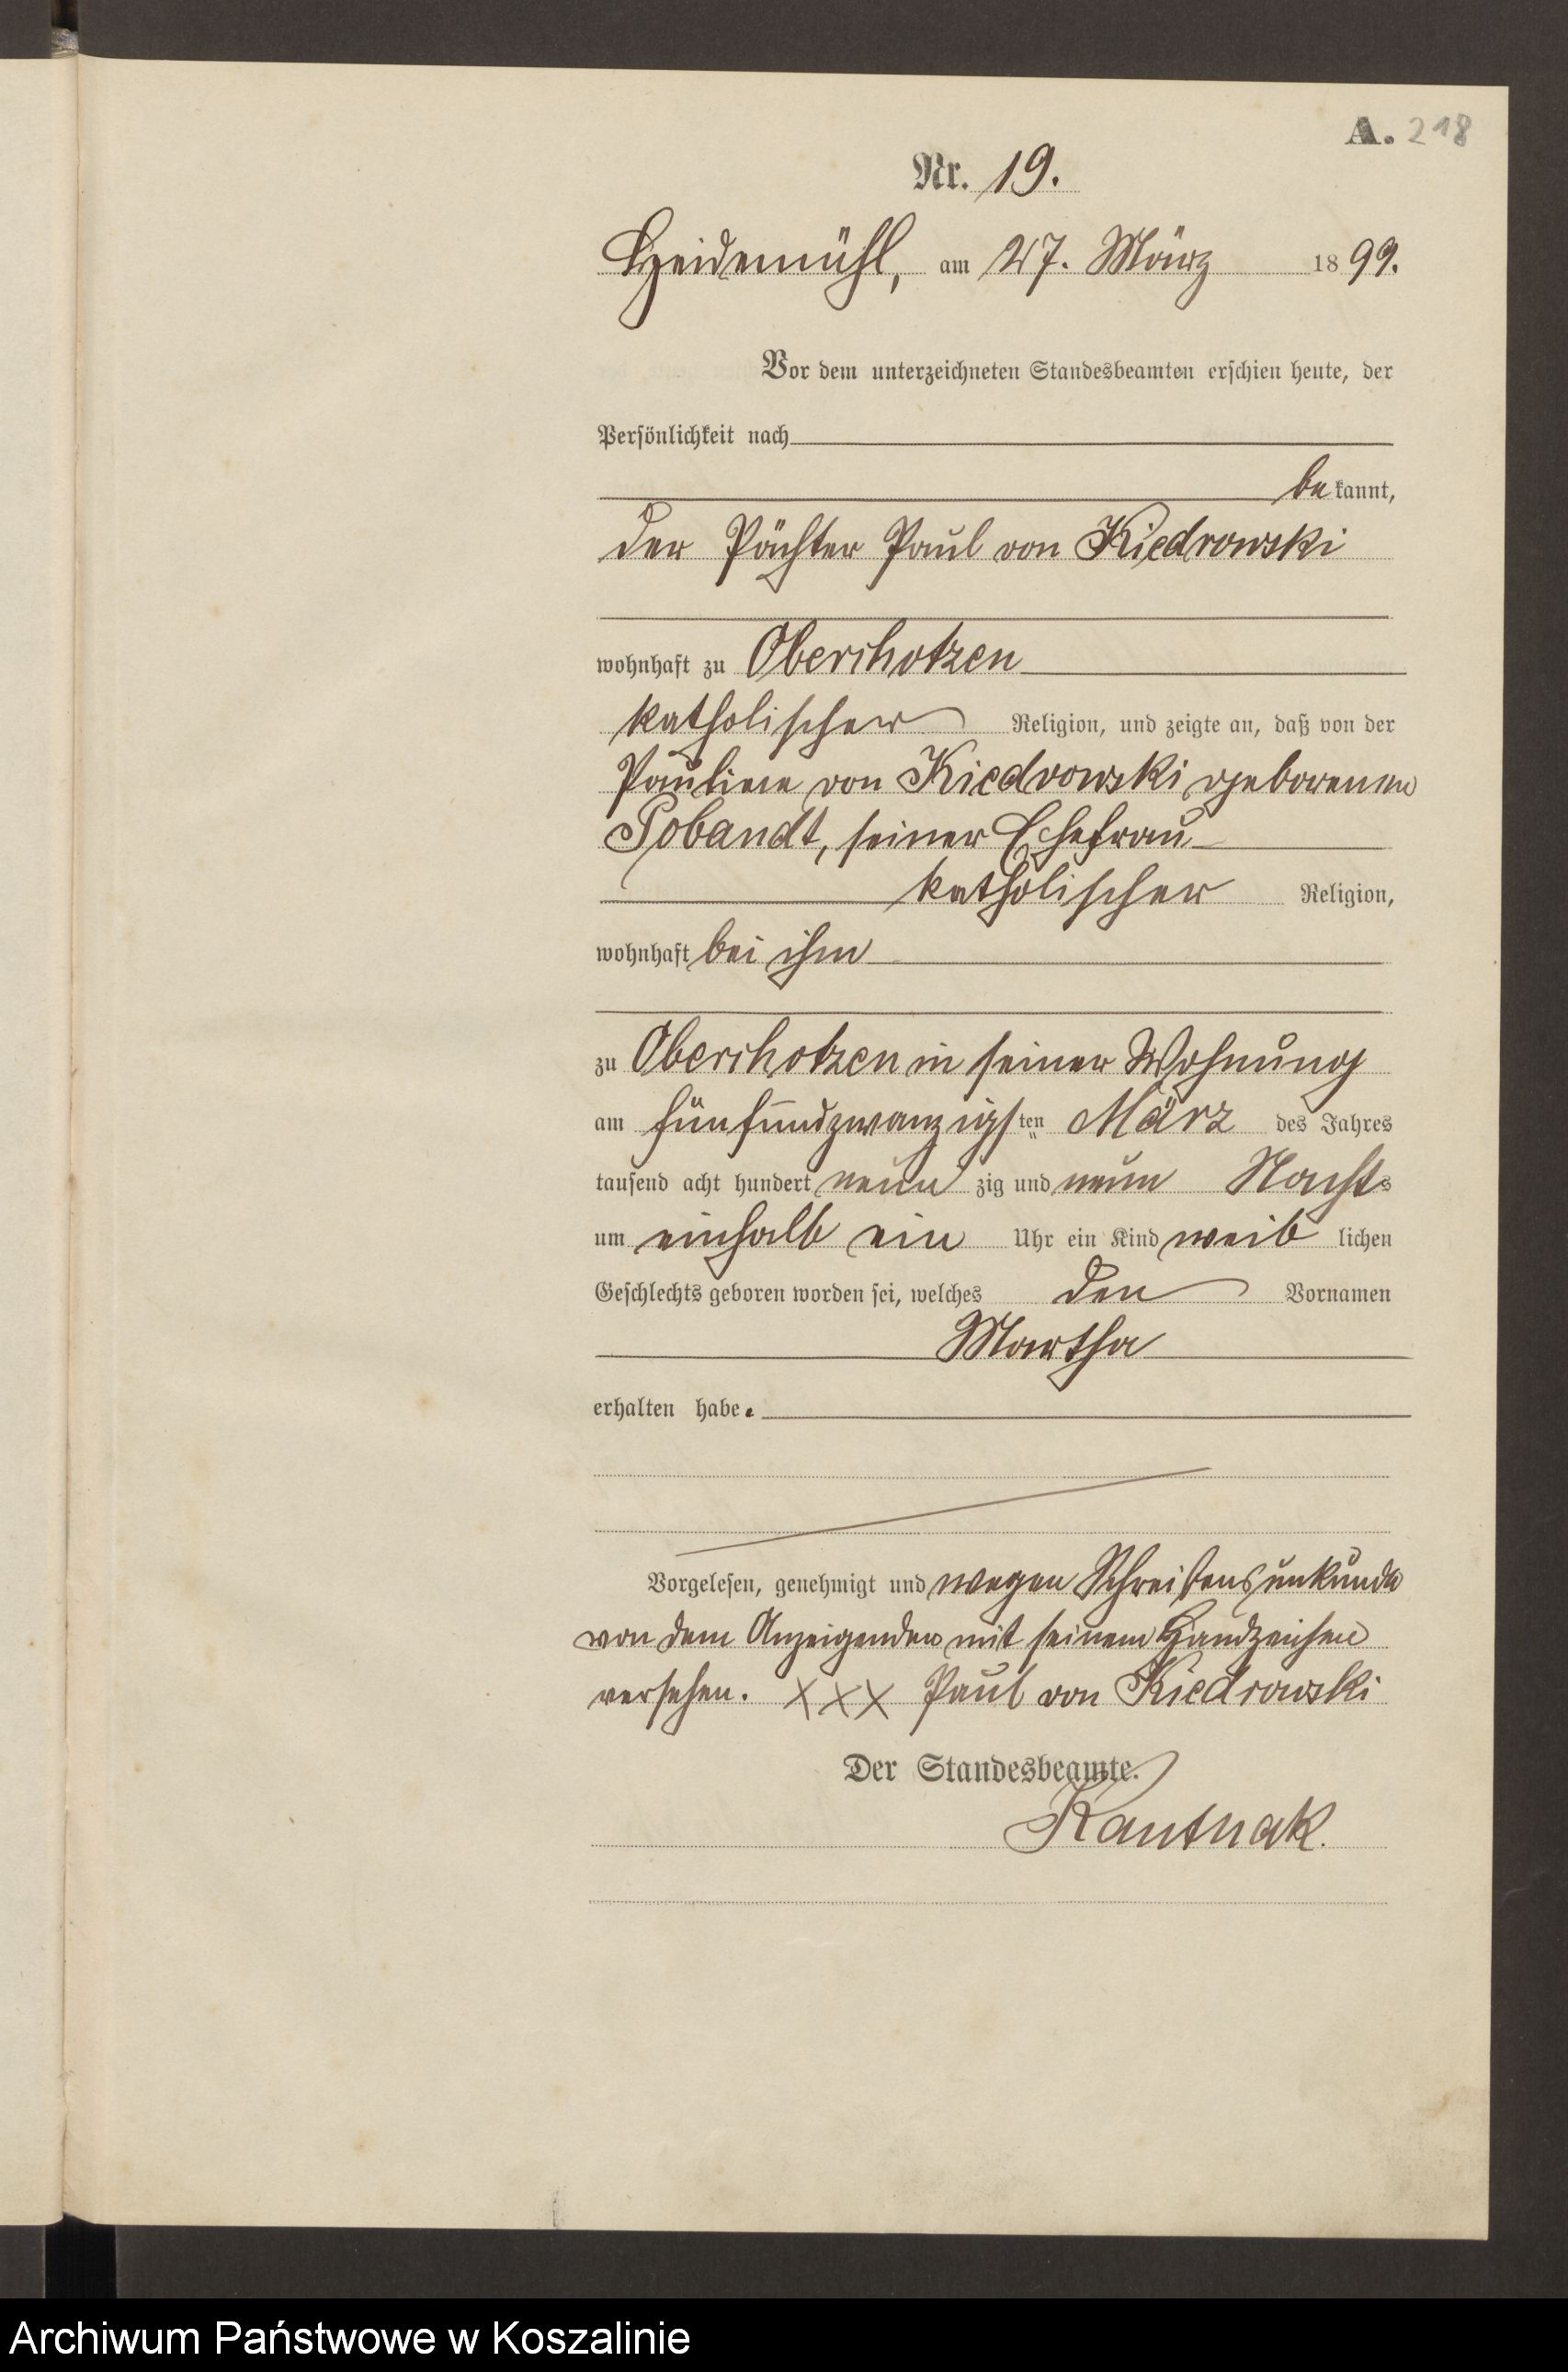 A. 218
Nr. 19.
Heidemühl, am 27. März 1899.
Vor dem unterzeichneten Standesbeamten erschien heute, der
Persönlichkeit nach
be kannt,
der Pächter Paul von Kiedrowski
wohnhaft zu Oberchotzen
katholischer Religion, und zeigte an, daß von der
Pauline von Kiedrowski geborenen
Pobandt, seiner Ehefrau
katholischer Religion,
wohnhaft bei ihm
zu Oberchotzen in seiner Wohnung
am fünfundzwanzigsten März des Jahres
tausend acht hundert neun zig und neun Nachts
um einhalb ein Uhr ein Kind weib lichen
Geschlechts geboren worden sei, welches den Vornamen
Martha
erhalten habe.
Vorgelesen, genehmigt und wegen Schreibensunkunde
von dem Anzeigenden mit seinem Handzeichen
versehen. XXX Paul von Kiedrowski
Der Standesbeamte.
Kantnak.
Archiwum Państwowe w Koszalinie